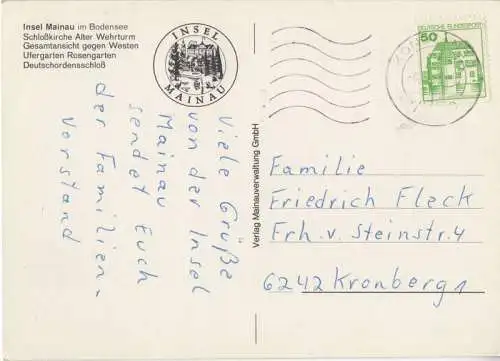 Insel Mainau im Bodensee
Schloßkirche Alter Wehrturm
Gesamtansicht gegen Westen
Ufergarten Rosengarten
Deutschordensschloß
INSEL
MAINAU
Viele Grüße
von der Insel
Mainau
sendet Euch
der Familien-
vorstand
Verlag Mainauverwaltung GmbH
50
DEUTSCHE BUNDESPOST
Familie
Friedrich Fleck
Frh. v. Steinstr. 4
6242 Kronberg 1